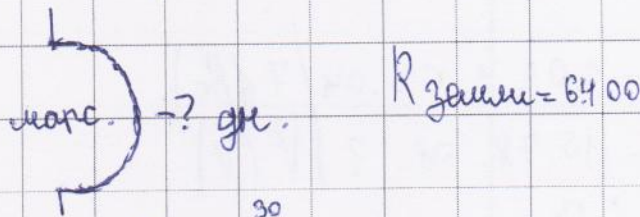 марс. -? дн. R земли = 6400
30